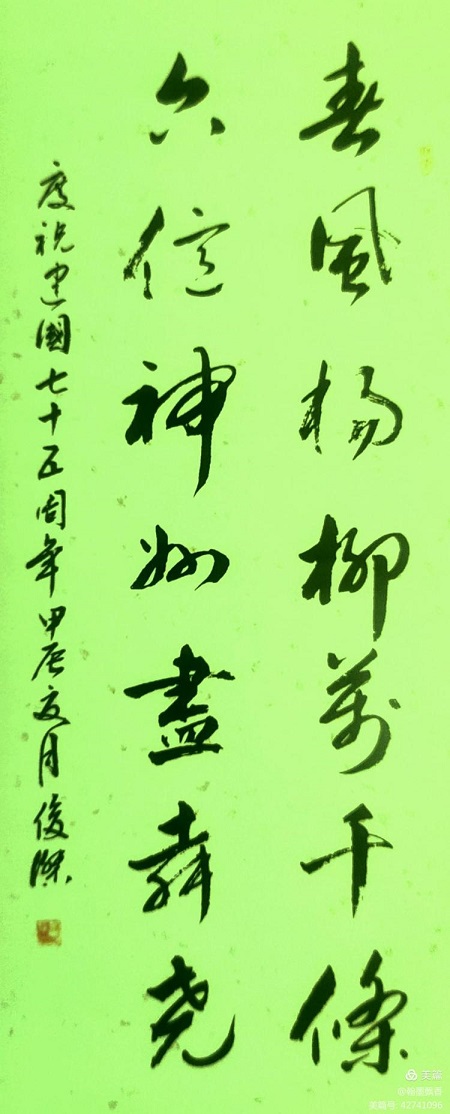 春風楊柳萬千條
六億神州盡舜尧
慶祝建國七十五周年甲辰夏月俊傑
美篇
美篇号 42741096